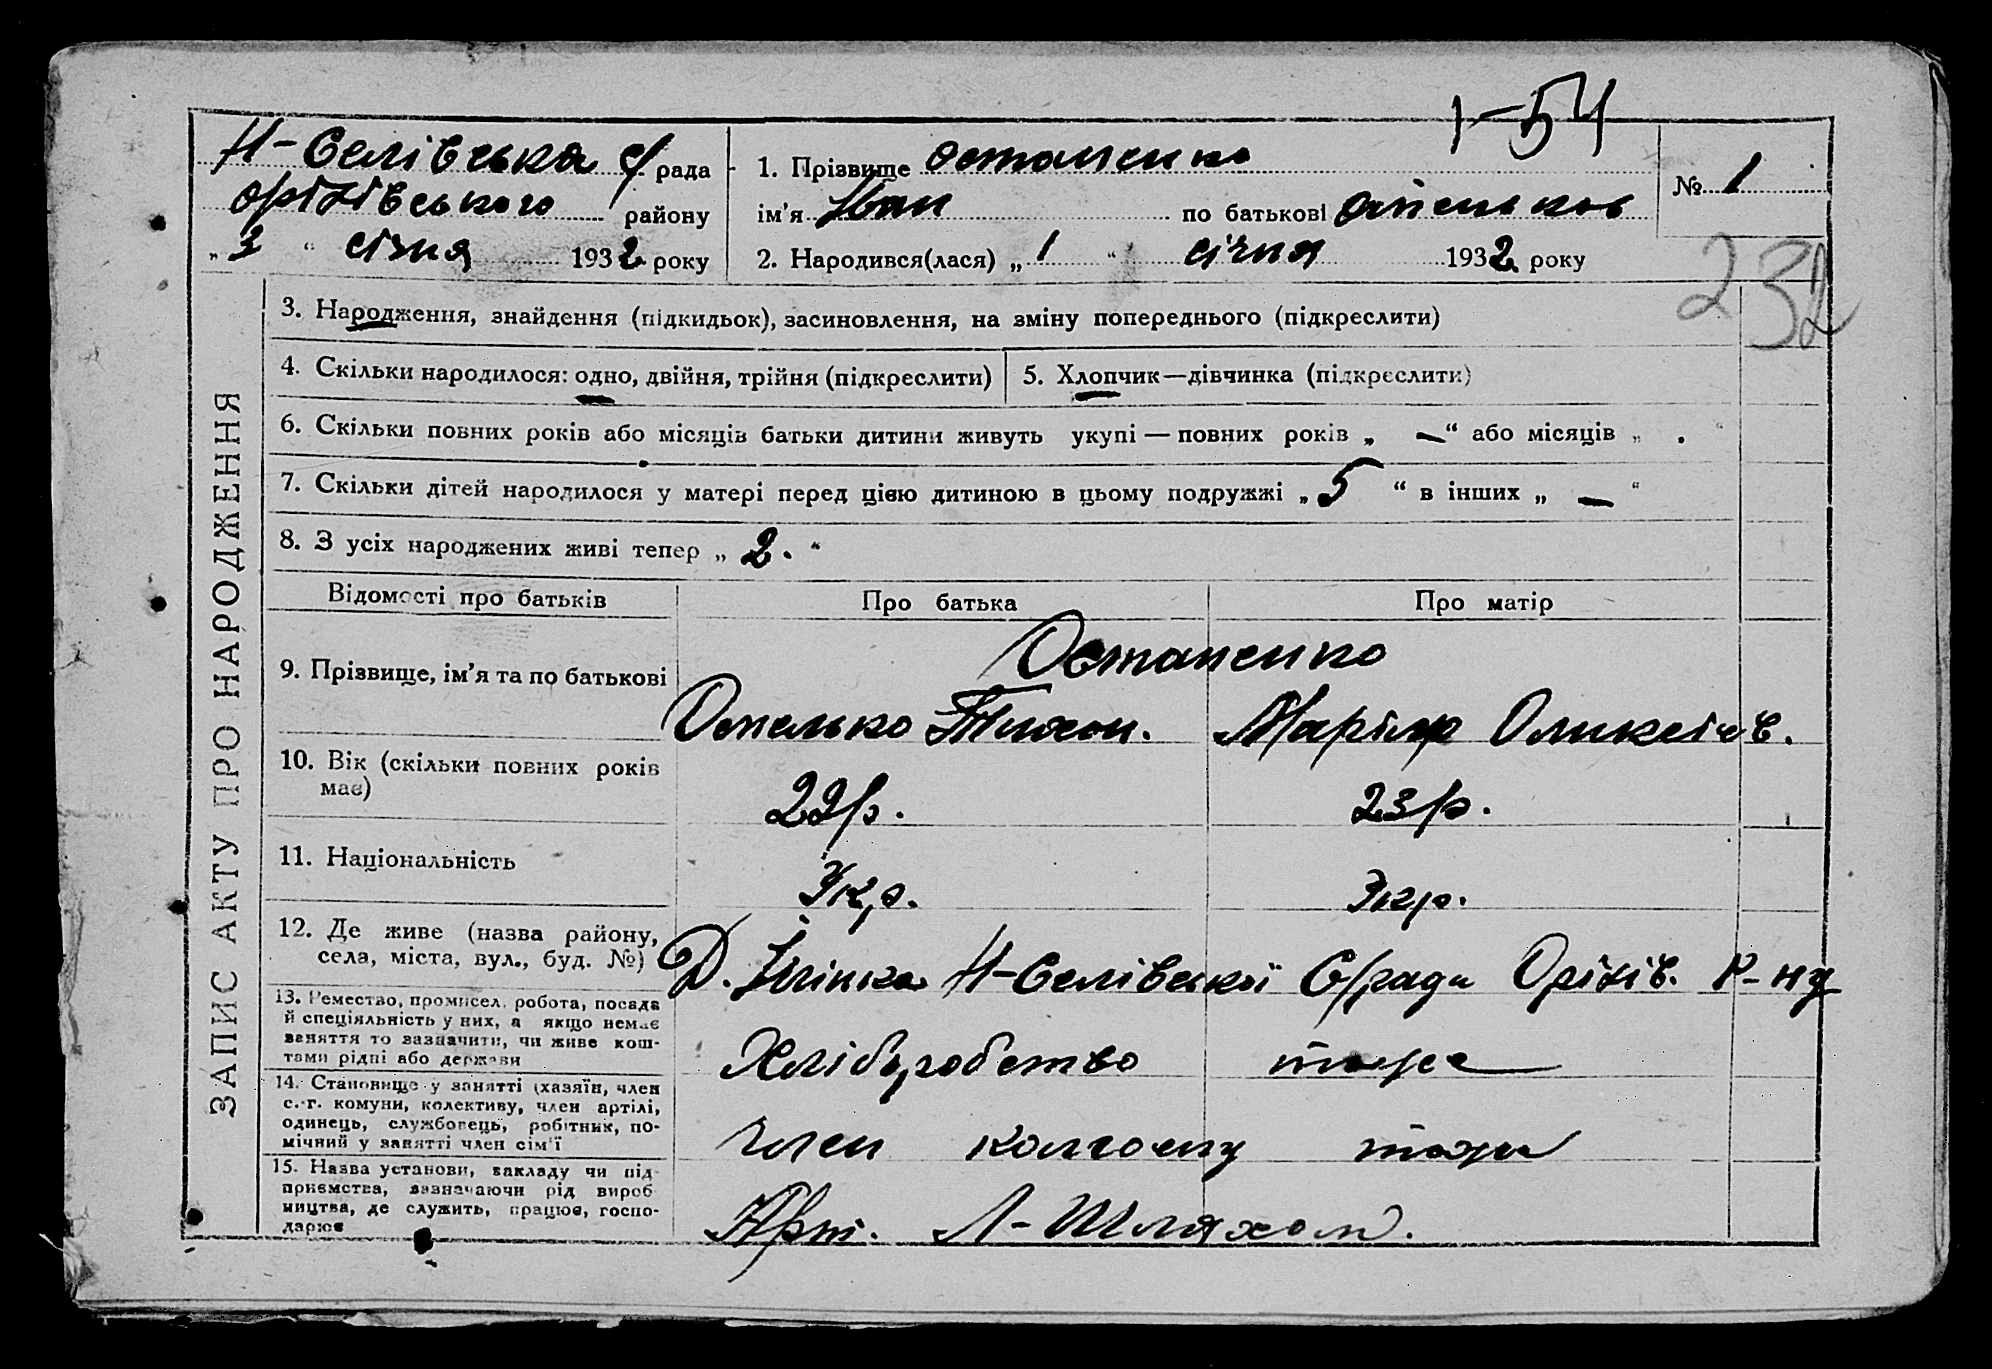 1-54
Н-Селівська с/рада
Оріхівського району
„3“ січня 1932 року
1. Прізвище Остапенко
ім'я Іван по батькові
2. Народився(лася) „1“ січня 1932 року
№ 1
232
ЗАПИС АКТУ ПРО НАРОДЖЕННЯ
3. Народження, знайдення (підкидьок), засиновлення, на зміну попереднього (підкреслити)
4. Скільки народилося: одно, двійня, трійня (підкреслити)
5. Хлопчик—дівчинка (підкреслити)
6. Скільки повних років або місяців батьки дитини живуть укупі — повних років „ — “ або місяців „ . “
7. Скільки дітей народилося у матері перед цією дитиною в цьому подружжі „5“ в інших „ — “
8. З усіх народжених живі тепер „2.“
Відомості про батьків Про батька Про матір
9. Прізвище, ім'я та по батькові
Остапенко
Тихон. Марія Олексіїв.
10. Вік (скільки повних років має)
22р. 23р.
11. Національність
Укр. Укр.
12. Де живе (назва району, села, міста, вул., буд. №)
Д. Н-Селівської С/ради Оріхів. Р-ну
13. Ремество, промисел, робота, посада й спеціяльність у них, а якщо немає заняття то зазначити, чи живе коштами рідні або держави
Хліборобство теж
14. Становище у занятті (хазяїн, член с.-г. комуни, колективу, член артілі, одинець, службовець, робітник, помічний у занятті член сім'ї
Член колгоспу теж
15. Назва установи, закладу чи підприємства, зазначаючи рід виробництва, де служить, працює, господарює
Арт. Л-Шляхом.